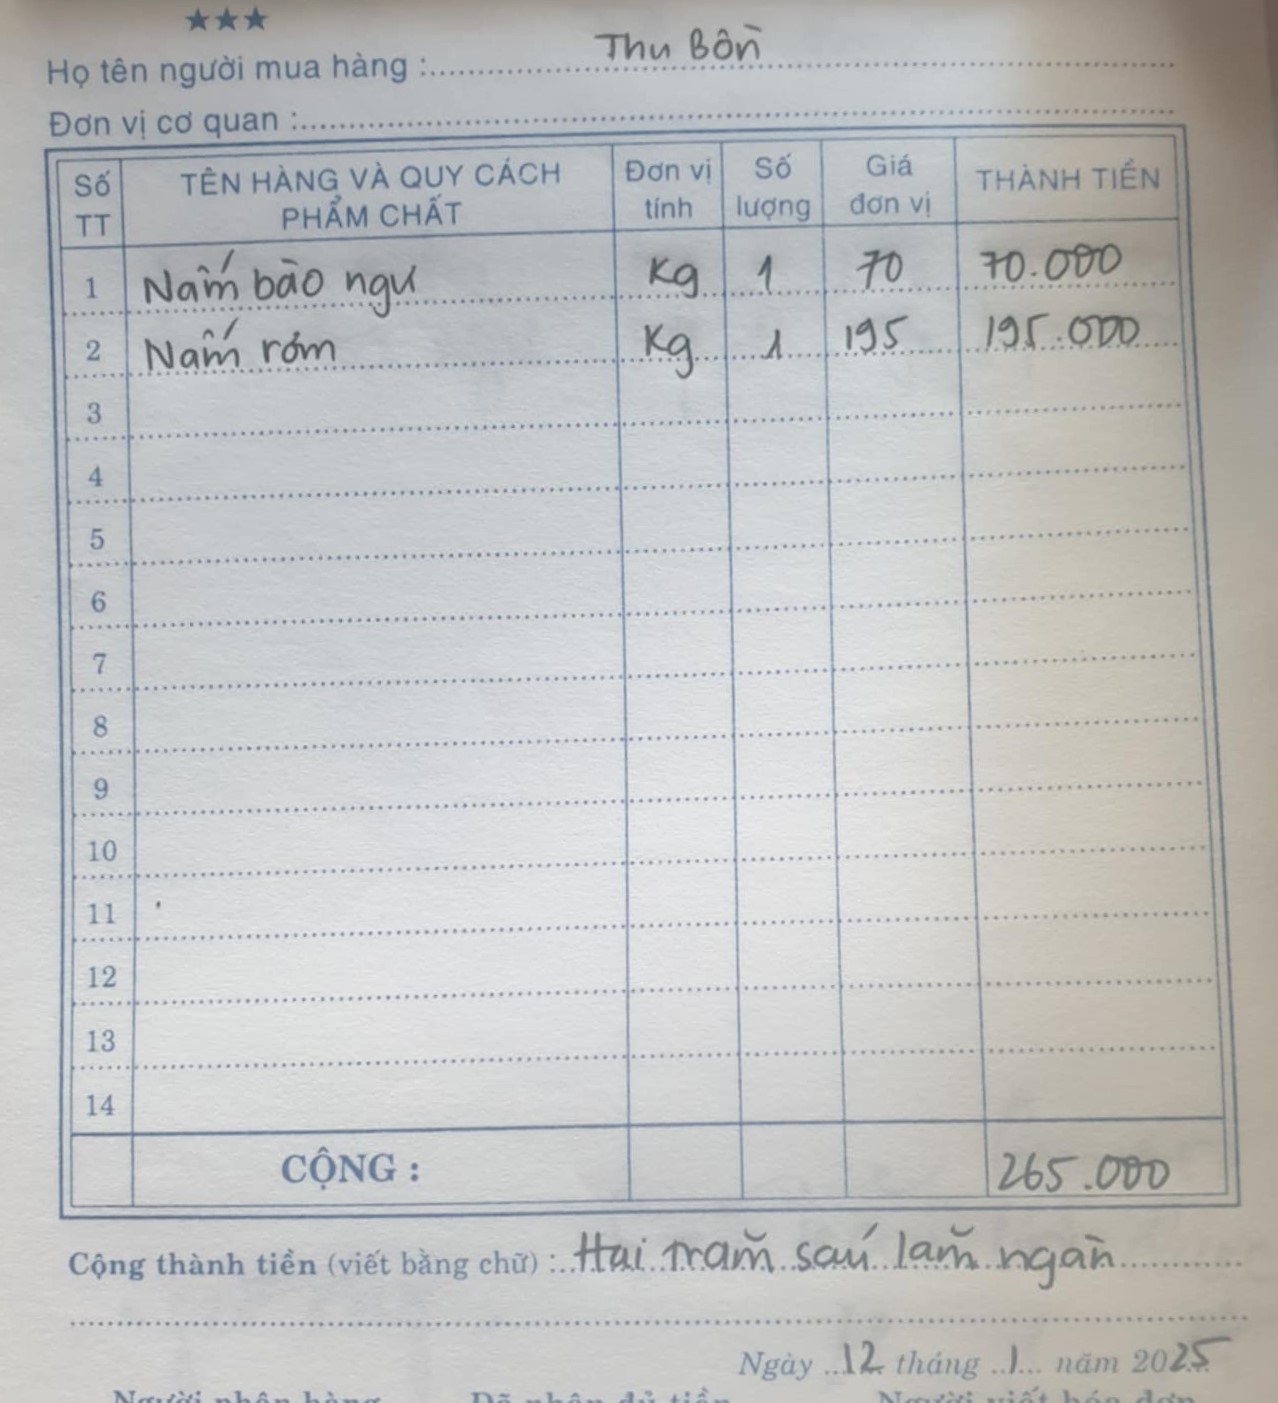 ★★★
Họ tên người mua hàng : Thu Bồn
Đơn vị cơ quan :
Số TT TÊN HÀNG VÀ QUY CÁCH PHẨM CHẤT Đơn vị tính Số lượng Giá đơn vị THÀNH TIỀN
1 Nấm bào ngư Kg 1 70 70.000
2 Nấm rơm Kg 1 195 195.000
3
4
5
6
7
8
9
10
11
12
13
14
CỘNG : 265.000
Cộng thành tiền (viết bằng chữ) : Hai trăm sáu lăm ngàn
Ngày 12 tháng 1 năm 2025
Người nhận hàng Đã nhận đủ tiền Người viết hóa đơn